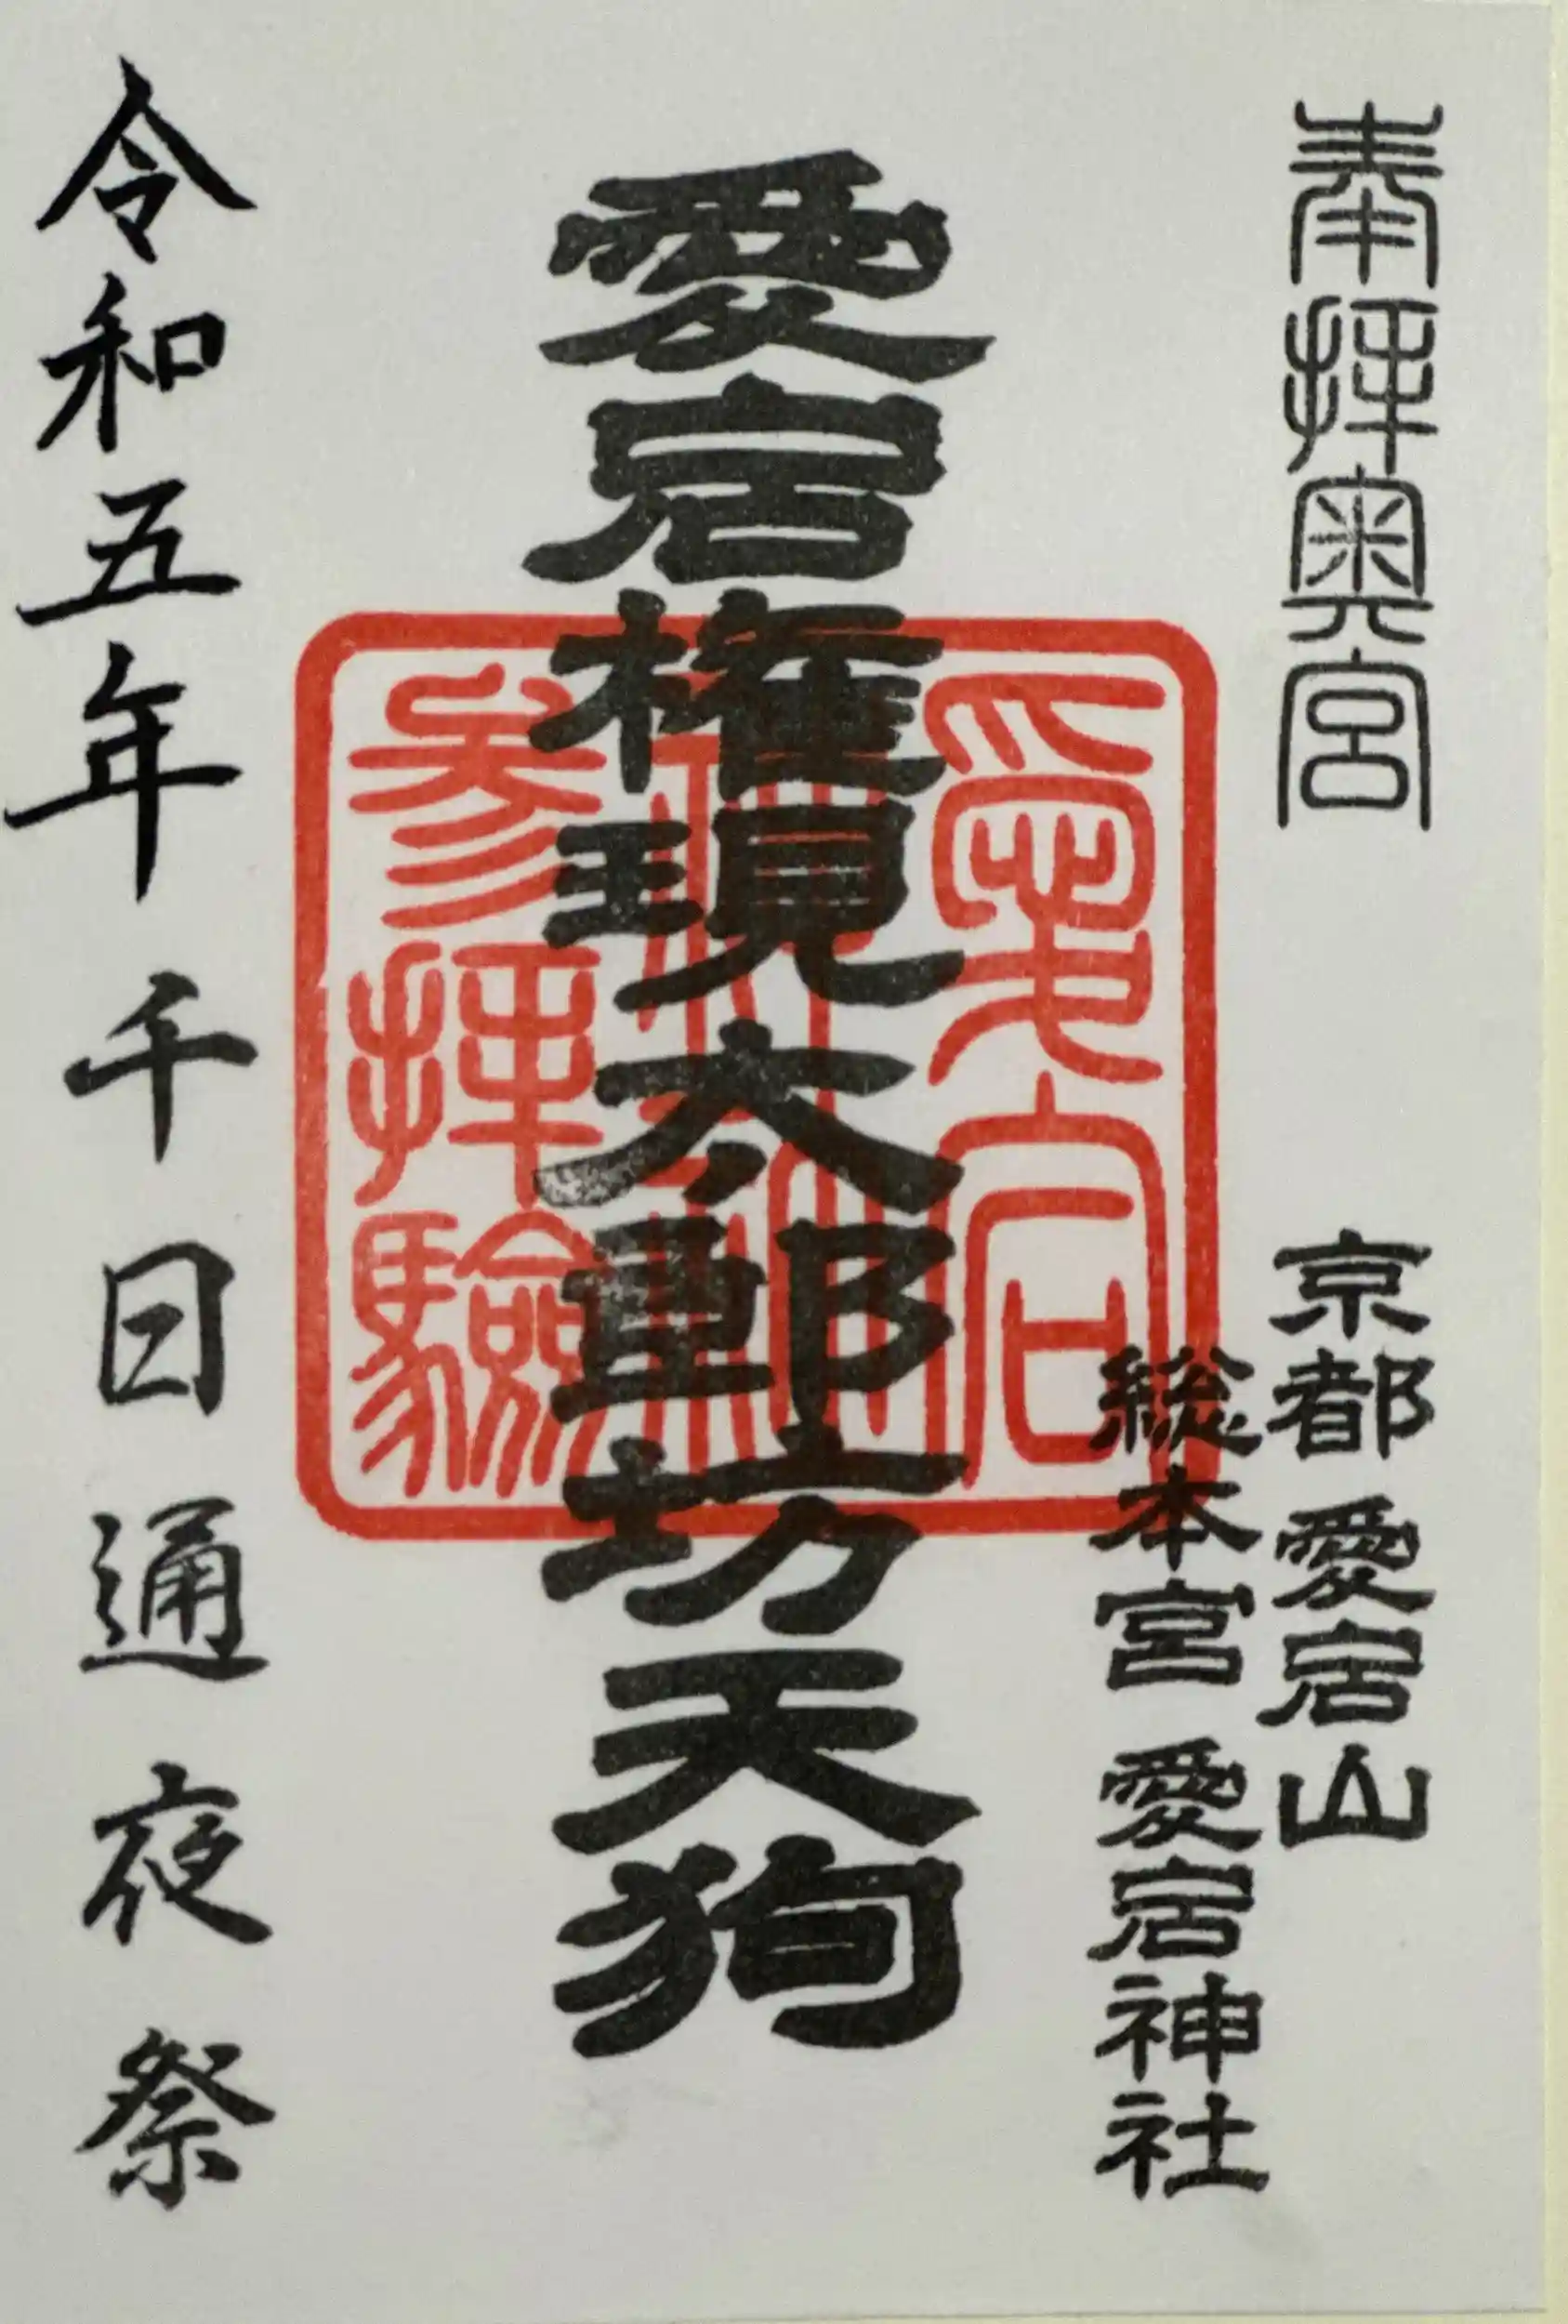 奉拝奥宮
京都 愛宕山
総本宮 愛宕神社
愛宕権現太郎坊天狗
愛宕
神社
参拝験
令和五年 千日通夜祭